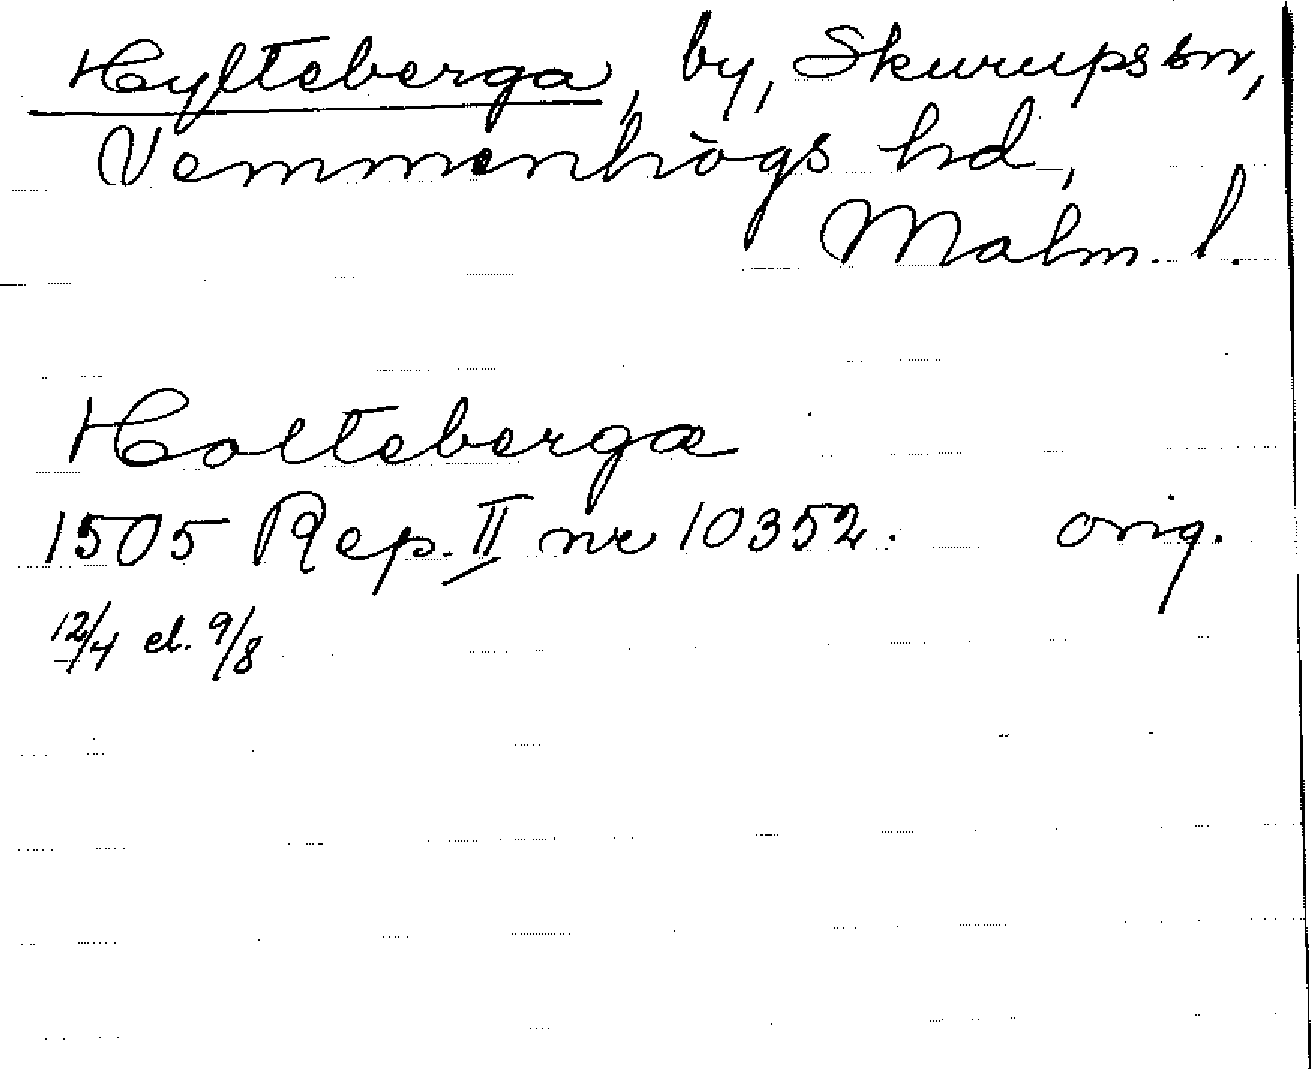 Hylteberga, by, Skurups sn,
Vemmenhögs hd,
Malm. l.
Holtebergæ
1505 Rep. II nr 10352. orig.
12/4 el. 9/8